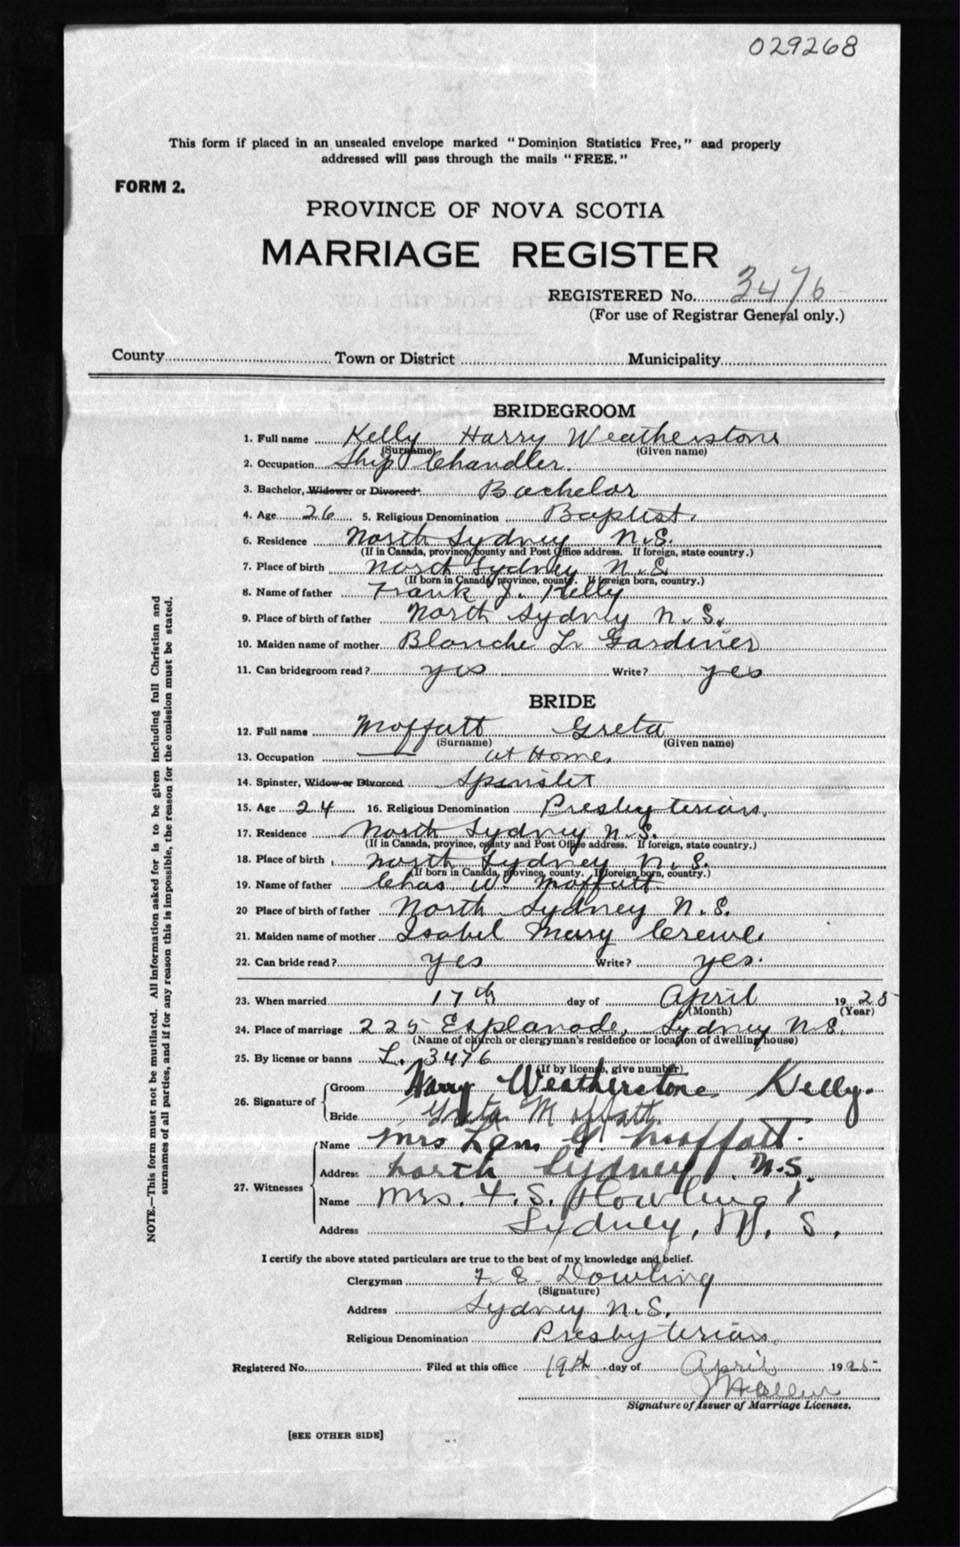 029268
This form if placed in an unsealed envelope marked "Dominion Statistics Free," and properly
addressed will pass through the mails "FREE."
FORM 2.
PROVINCE OF NOVA SCOTIA
MARRIAGE REGISTER
REGISTERED No. 3476
(For use of Registrar General only.)
County Town or District Municipality
BRIDEGROOM
1. Full name Kelly Harry Weatherstone
(Surname) (Given name)
2. Occupation Ship Chandler.
3. Bachelor, Widower or Divorced Bachelor
4. Age 26 5. Religious Denomination Baptist.
6. Residence North Sydney N.S.
(If in Canada, province, county and Post Office address. If foreign, state country.)
7. Place of birth North Sydney N.S
(If born in Canada, province, county. If foreign born, country.)
8. Name of father Frank J. Kelly
9. Place of birth of father North Sydney N.S.
10. Maiden name of mother Blanche L. Gardiner
11. Can bridegroom read? yes Write? yes
BRIDE
12. Full name Moffatt Greta
(Surname) (Given name)
13. Occupation at Home.
14. Spinster, Widow or Divorced Spinster
15. Age 24 16. Religious Denomination Presbyterian.
17. Residence North Sydney N.S.
(If in Canada, province, county and Post Office address. If foreign, state country.)
18. Place of birth North Sydney N.S.
(If born in Canada, province, county. If foreign born, country.)
19. Name of father Chas W. Moffatt
20 Place of birth of father North Sydney N.S.
21. Maiden name of mother Isabel Mary Crewe
22. Can bride read? yes Write? yes.
23. When married 17th day of April 1925
(Month) (Year)
24. Place of marriage 225 Esplanade, Sydney N.S.
(Name of church or clergyman's residence or location of dwelling house)
25. By license or banns L. 3476
(If by license, give number)
26. Signature of Groom Harry Weatherstone Kelly.
Bride Greta Moffatt.
27. Witnesses Name Mrs G. Moffatt.
Address North Sydney N.S.
Name Mrs. F. S. Dowling
Address Sydney, N. S.
I certify the above stated particulars are true to the best of my knowledge and belief.
Clergyman F. S. Dowling
(Signature)
Address Sydney N.S.
Religious Denomination Presbyterian.
Registered No. Filed at this office 19th day of April 1925
Signature of Issuer of Marriage Licenses.
[SEE OTHER SIDE]
NOTE.—This form must not be mutilated. All information asked for is to be given including full Christian and
surnames of all parties, and if for any reason this is impossible, the reason for the omission must be stated.